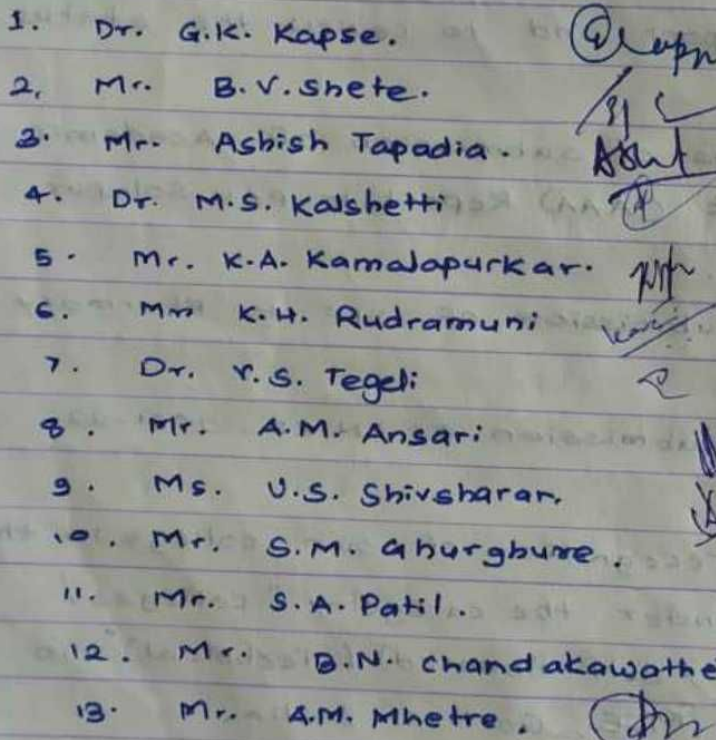 1. Dr. G.K. Kapse.
2. Mr. B.V. Shete.
3. Mr. Ashish Tapadia.
4. Dr. M.S. Kalshetti
5. Mr. K.A. Kamalapurkar.
6. Mr. K.H. Rudramuni
7. Dr. Y.S. Tegeli
8. Mr. A.M. Ansari
9. Ms. U.S. Shivsharan.
10. Mr. S.M. Ghurghure.
11. Mr. S.A. Patil.
12. Mr. B.N. Chandakawathe
13. Mr. A.M. Mhetre.